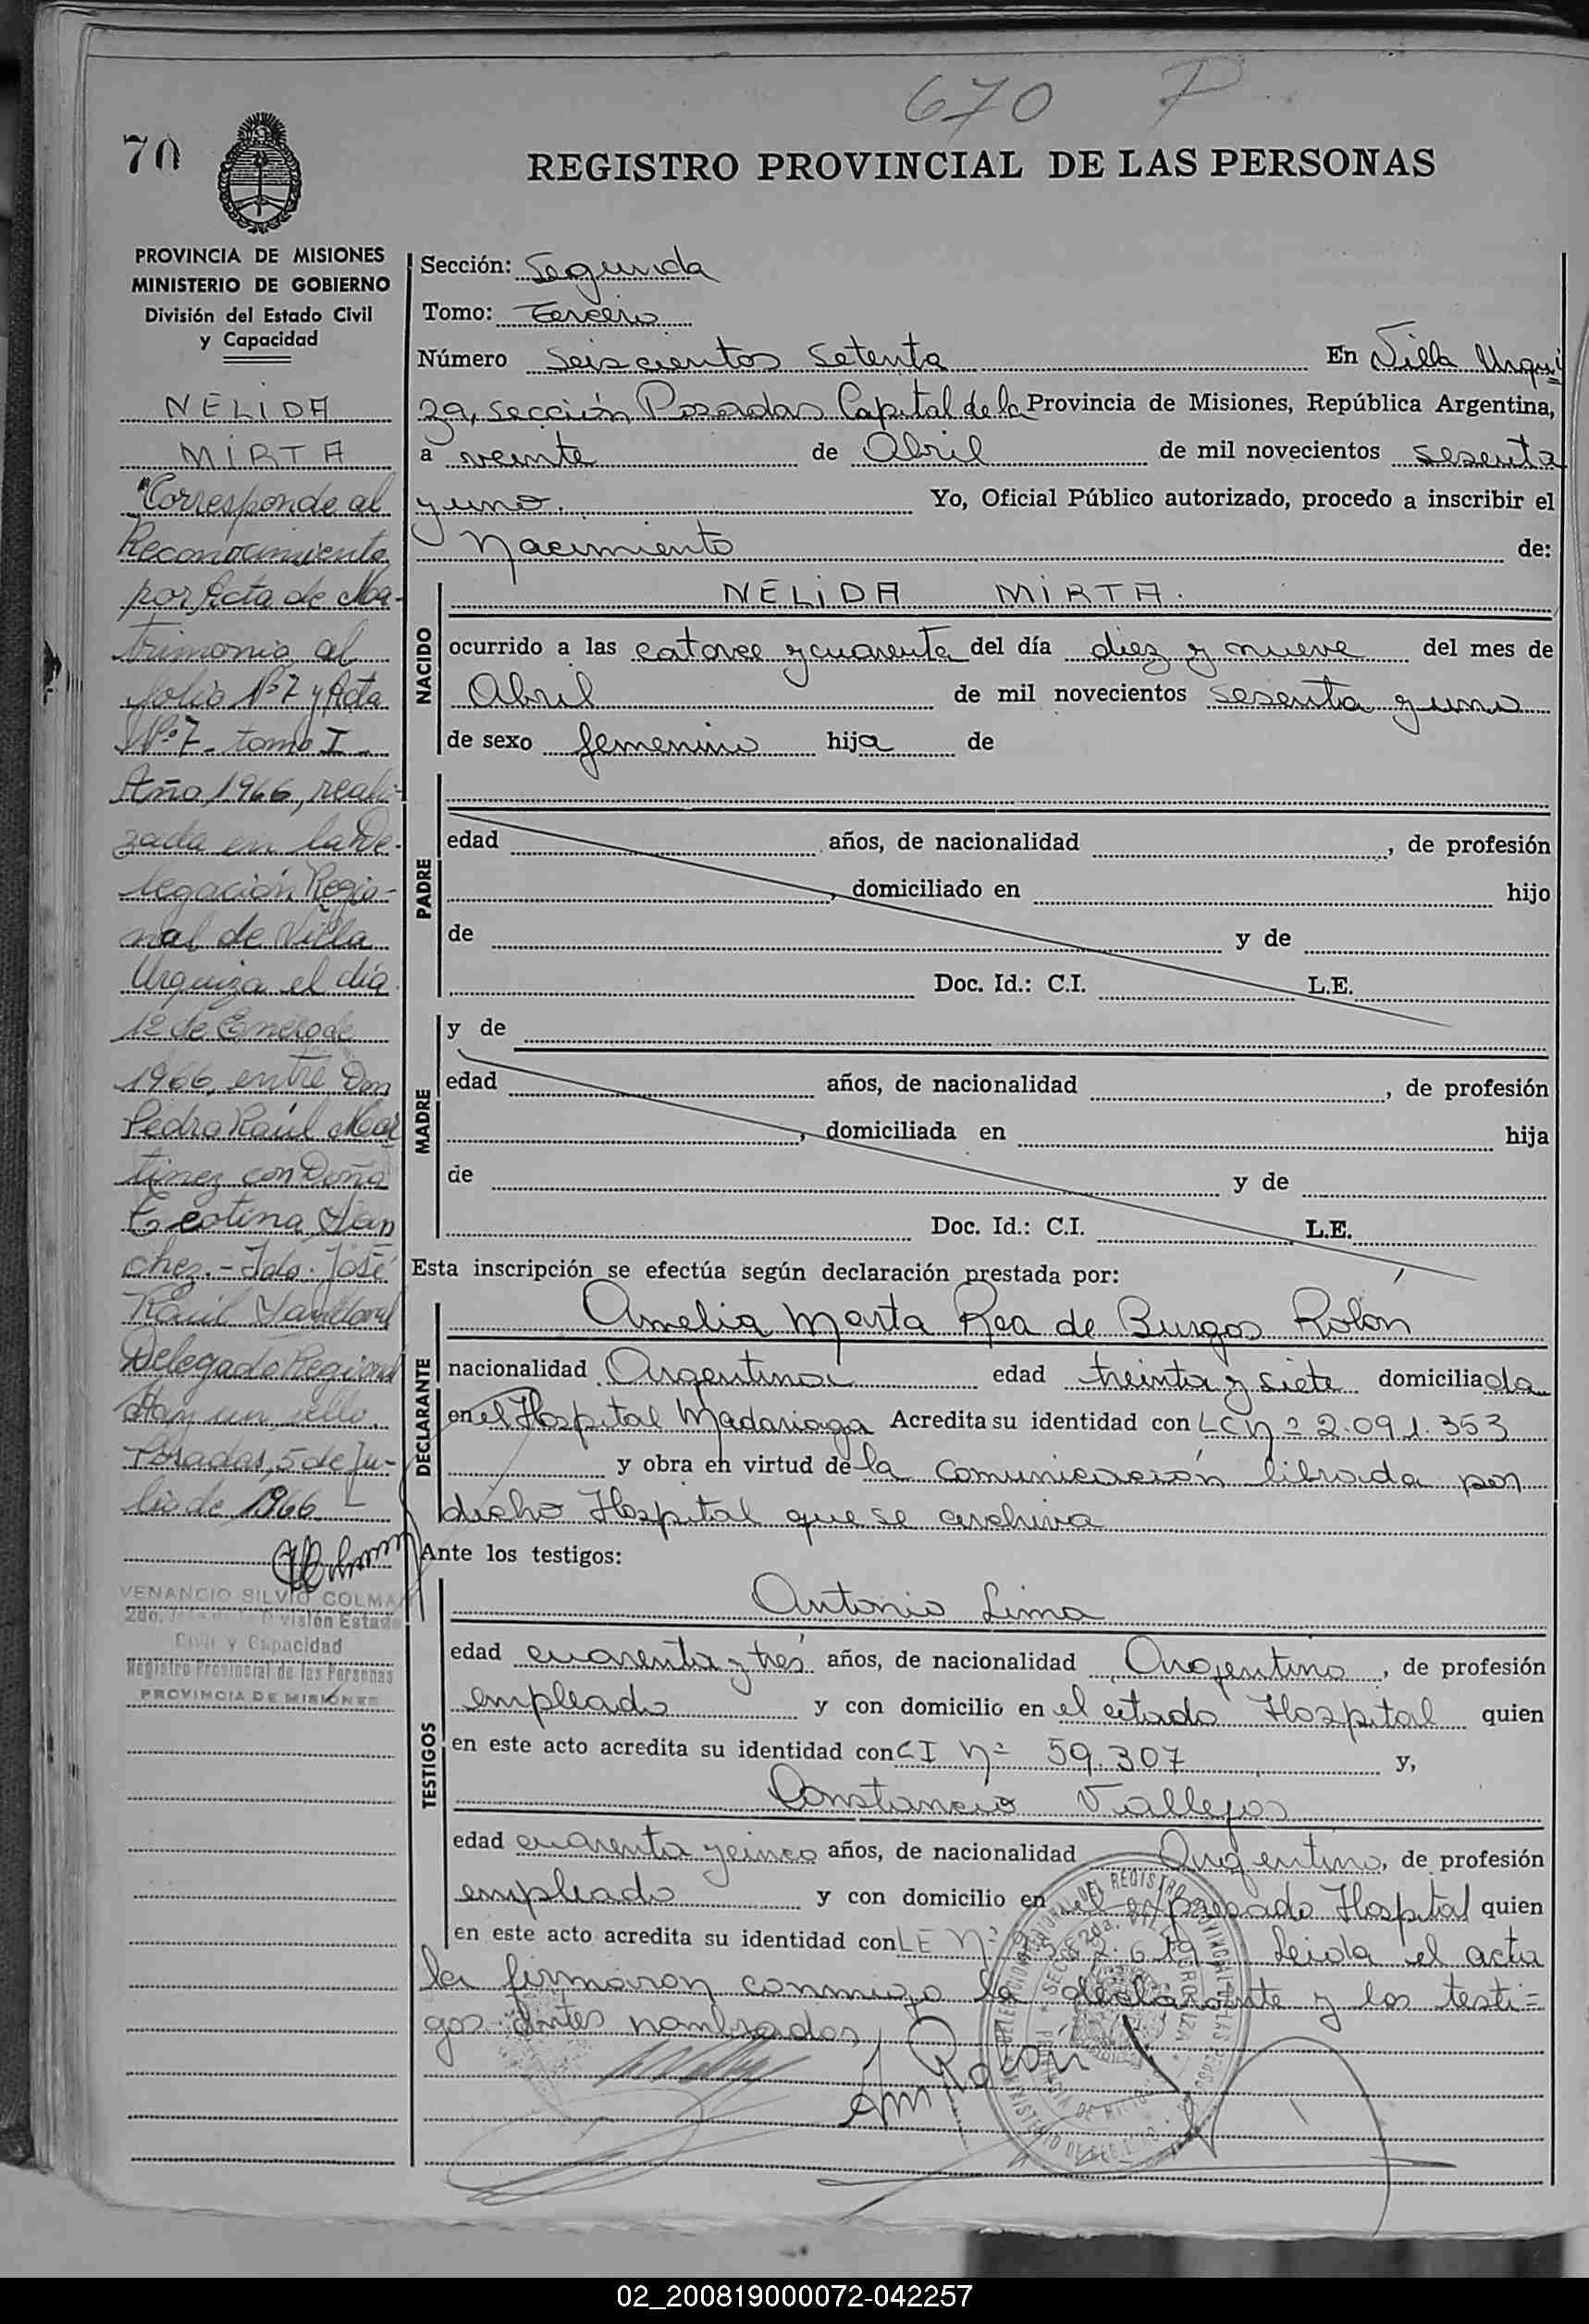 670 P
70
REGISTRO PROVINCIAL DE LAS PERSONAS
PROVINCIA DE MISIONES
MINISTERIO DE GOBIERNO
División del Estado Civil
y Capacidad
NELIDA
MIRTA
"Corresponde al
Reconocimiento
por Acta de Ma-
trimonio al
folio Nº 7 y Acta
Nº 7 - tomo I -
Año 1966, reali-
zada en la De-
legación Regio-
nal de Villa
Urquiza el día
12 de Enero de
1966, entre Don
Pedro Raúl Mar
tinez con Doña
Teotina San
chez.- Fdo. José
Raúl Sandoval
Delegado Regional
Hay un sello.
Posadas, 5 de Ju-
lio de 1966
VENANCIO SILVIO COLMA
2do. Jefe de la División Estado
Civil y Capacidad
Registro Provincial de las Personas
PROVINCIA DE MISIONES
Sección: Segunda
Tomo: Tercero
Número Seiscientos Setenta En Villa Urqui
za, sección Posadas Capital de la Provincia de Misiones, República Argentina,
a veinte de Abril de mil novecientos sesenta
y uno. Yo, Oficial Público autorizado, procedo a inscribir el
Nacimiento de:
NACIDO
NELIDA MIRTA.
ocurrido a las catorce y cuarenta del día diez y nueve del mes de
Abril de mil novecientos sesenta y uno
de sexo femenino hija de
PADRE
edad años, de nacionalidad , de profesión
, domiciliado en hijo
de y de
Doc. Id.: C.I. L.E.
MADRE
y de
edad años, de nacionalidad , de profesión
, domiciliada en hija
de y de
Doc. Id.: C.I. L.E.
Esta inscripción se efectúa según declaración prestada por:
DECLARANTE
Amelia Marta Rea de Burgos Rolón
nacionalidad Argentina edad treinta y siete domiciliada
en el Hospital Madariaga Acredita su identidad con LC Nº 2.091.353
y obra en virtud de la comunicación librada por
dicho Hospital que se archiva
Ante los testigos:
TESTIGOS
Antonio Lima
edad cuarenta y tres años, de nacionalidad Argentino, de profesión
empleado y con domicilio en el citado Hospital quien
en este acto acredita su identidad con CI Nº 59.307 y,
Constancio Vallejos
edad cuarenta y cinco años, de nacionalidad Argentino, de profesión
empleado y con domicilio en el expresado Hospital quien
en este acto acredita su identidad con LE Nº Leida el acta
la firmaron conmigo la declarante y los testi=
gos antes nombrados,
Am Rolón
02_200819000072-042257